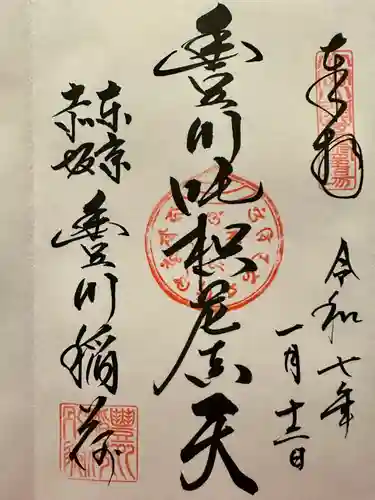 奉拝
令和七年
一月十二日
豊川吒枳尼真天
東京
赤坂
豊川稲荷